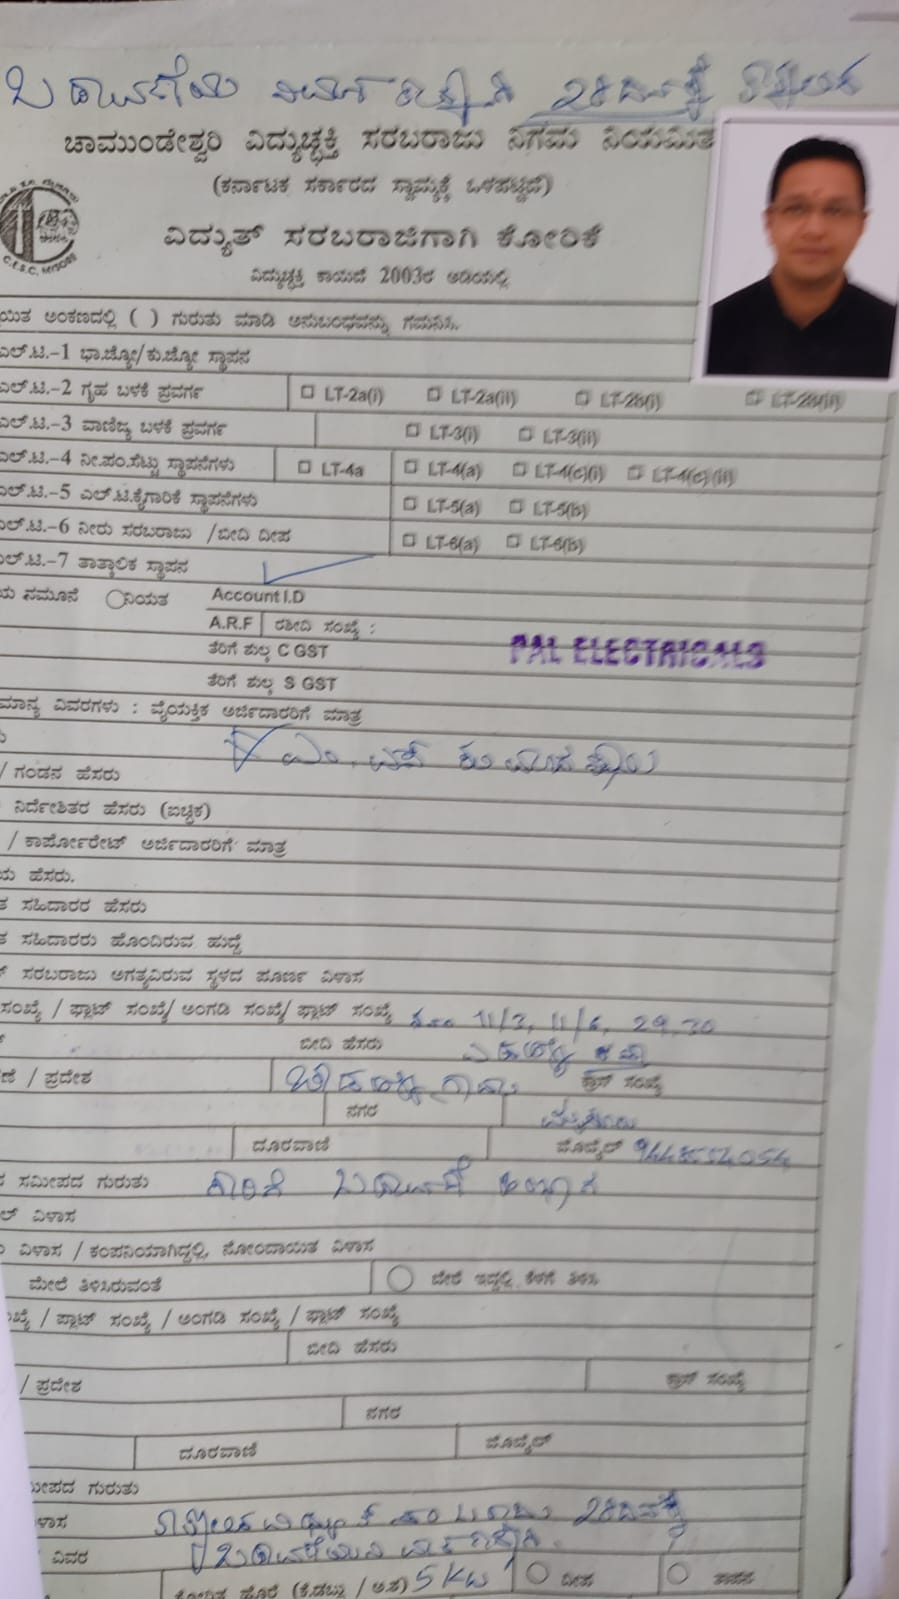 ಬಡಾವಣೆಯ 28 ದಿನಕ್ಕೆ
ಚಾಮುಂಡೇಶ್ವರಿ ವಿದ್ಯುಚ್ಛಕ್ತಿ ಸರಬರಾಜು ನಿಗಮ ನಿಯಮಿತ
(ಕರ್ನಾಟಕ ಸರ್ಕಾರದ ಸ್ವಾಮ್ಯಕ್ಕೆ ಒಳಪಟ್ಟಿದೆ)
C.E.S.C, MYSORE
ವಿದ್ಯುತ್ ಸರಬರಾಜಿಗಾಗಿ ಕೋರಿಕೆ
ವಿದ್ಯುಚ್ಛಕ್ತಿ ಕಾಯಿದೆ 2003ರ ಅಡಿಯಲ್ಲಿ
ಯಿತ ಅಂಕಣದಲ್ಲಿ ( ) ಗುರುತು ಮಾಡಿ ಅನುಬಂಧವನ್ನು ಗಮನಿಸಿ.
ಎಲ್.ಟಿ.-1 ಭಾ.ಜ್ಯೋ/ಕು.ಜ್ಯೋ ಸ್ಥಾಪನ
ಎಲ್.ಟಿ.-2 ಗೃಹ ಬಳಕೆ ಪ್ರವರ್ಗ LT-2a(i) LT-2a(ii) LT-2b(i) LT-2b(ii)
ಎಲ್.ಟಿ.-3 ವಾಣಿಜ್ಯ ಬಳಕೆ ಪ್ರವರ್ಗ LT-3(i) LT-3(ii)
ಎಲ್.ಟಿ.-4 ನೀ.ಪಂ.ಸೆಟ್ಟು ಸ್ಥಾಪನೆಗಳು LT-4a LT-4(a) LT-4(c)(i) LT-4(c)(ii)
ಎಲ್.ಟಿ.-5 ಎಲ್.ಟಿ.ಕೈಗಾರಿಕೆ ಸ್ಥಾಪನೆಗಳು LT-5(a) LT-5(b)
ಎಲ್.ಟಿ.-6 ನೀರು ಸರಬರಾಜು /ಬೀದಿ ದೀಪ LT-6(a) LT-6(b)
ಎಲ್.ಟಿ.-7 ತಾತ್ಕಾಲಿಕ ಸ್ಥಾಪನ
ಯ ನಮೂನೆ ನಿಯತ Account I.D
A.R.F ರಶೀದಿ ಸಂಖ್ಯೆ :
ತೆರಿಗೆ ಶುಲ್ಕ C GST PAL ELECTRICALS
ತೆರಿಗೆ ಶುಲ್ಕ S GST
ಮಾನ್ಯ ವಿವರಗಳು : ವೈಯಕ್ತಿಕ ಅರ್ಜಿದಾರರಿಗೆ ಮಾತ್ರ
ಎಂ. ಎಸ್
/ ಗಂಡನ ಹೆಸರು
ನಿರ್ದೇಶಿತರ ಹೆಸರು (ಐಚ್ಛಿಕ)
/ ಕಾರ್ಪೋರೇಟ್ ಅರ್ಜಿದಾರರಿಗೆ ಮಾತ್ರ
ಯ ಹೆಸರು.
ತ ಸಹಿದಾರರ ಹೆಸರು
ತ ಸಹಿದಾರರು ಹೊಂದಿರುವ ಹುದ್ದೆ
ಸರಬರಾಜು ಅಗತ್ಯವಿರುವ ಸ್ಥಳದ ಪೂರ್ಣ ವಿಳಾಸ
ಸಂಖ್ಯೆ / ಪ್ಲಾಟ್ ಸಂಖ್ಯೆ/ ಅಂಗಡಿ ಸಂಖ್ಯೆ/ ಫ್ಲಾಟ್ ಸಂಖ್ಯೆ 11/3, 11/6, 29, 30
ಬೀದಿ ಹೆಸರು
ಣೆ / ಪ್ರದೇಶ ಕ್ರಾಸ್ ಸಂಖ್ಯೆ
ನಗರ
ದೂರವಾಣಿ ಮೊಬೈಲ್ 9448554054
ಸಮೀಪದ ಗುರುತು
ಲ್ ವಿಳಾಸ
ವಿಳಾಸ / ಕಂಪನಿಯಾಗಿದ್ದಲ್ಲಿ, ನೋಂದಾಯಿತ ವಿಳಾಸ
ಮೇಲೆ ತಿಳಿಸಿರುವಂತೆ ಬೇರೆ ಇದ್ದಲ್ಲಿ ಕೆಳಗೆ ತಿಳಿಸಿ
ಖ್ಯೆ / ಪ್ಲಾಟ್ ಸಂಖ್ಯೆ / ಅಂಗಡಿ ಸಂಖ್ಯೆ / ಫ್ಲಾಟ್ ಸಂಖ್ಯೆ
ಬೀದಿ ಹೆಸರು
/ ಪ್ರದೇಶ ಕ್ರಾಸ್ ಸಂಖ್ಯೆ
ನಗರ
ದೂರವಾಣಿ ಮೊಬೈಲ್
ಮೀಪದ ಗುರುತು
ಳಾಸ 28 ದಿನಕ್ಕೆ
ವಿವರ
ಕೋರಿದ ಹೊರೆ (ಕಿ.ಡಬ್ಲ್ಯು / ಅ.ಶ) 5 KW ದೀಪ ತಾಪನ